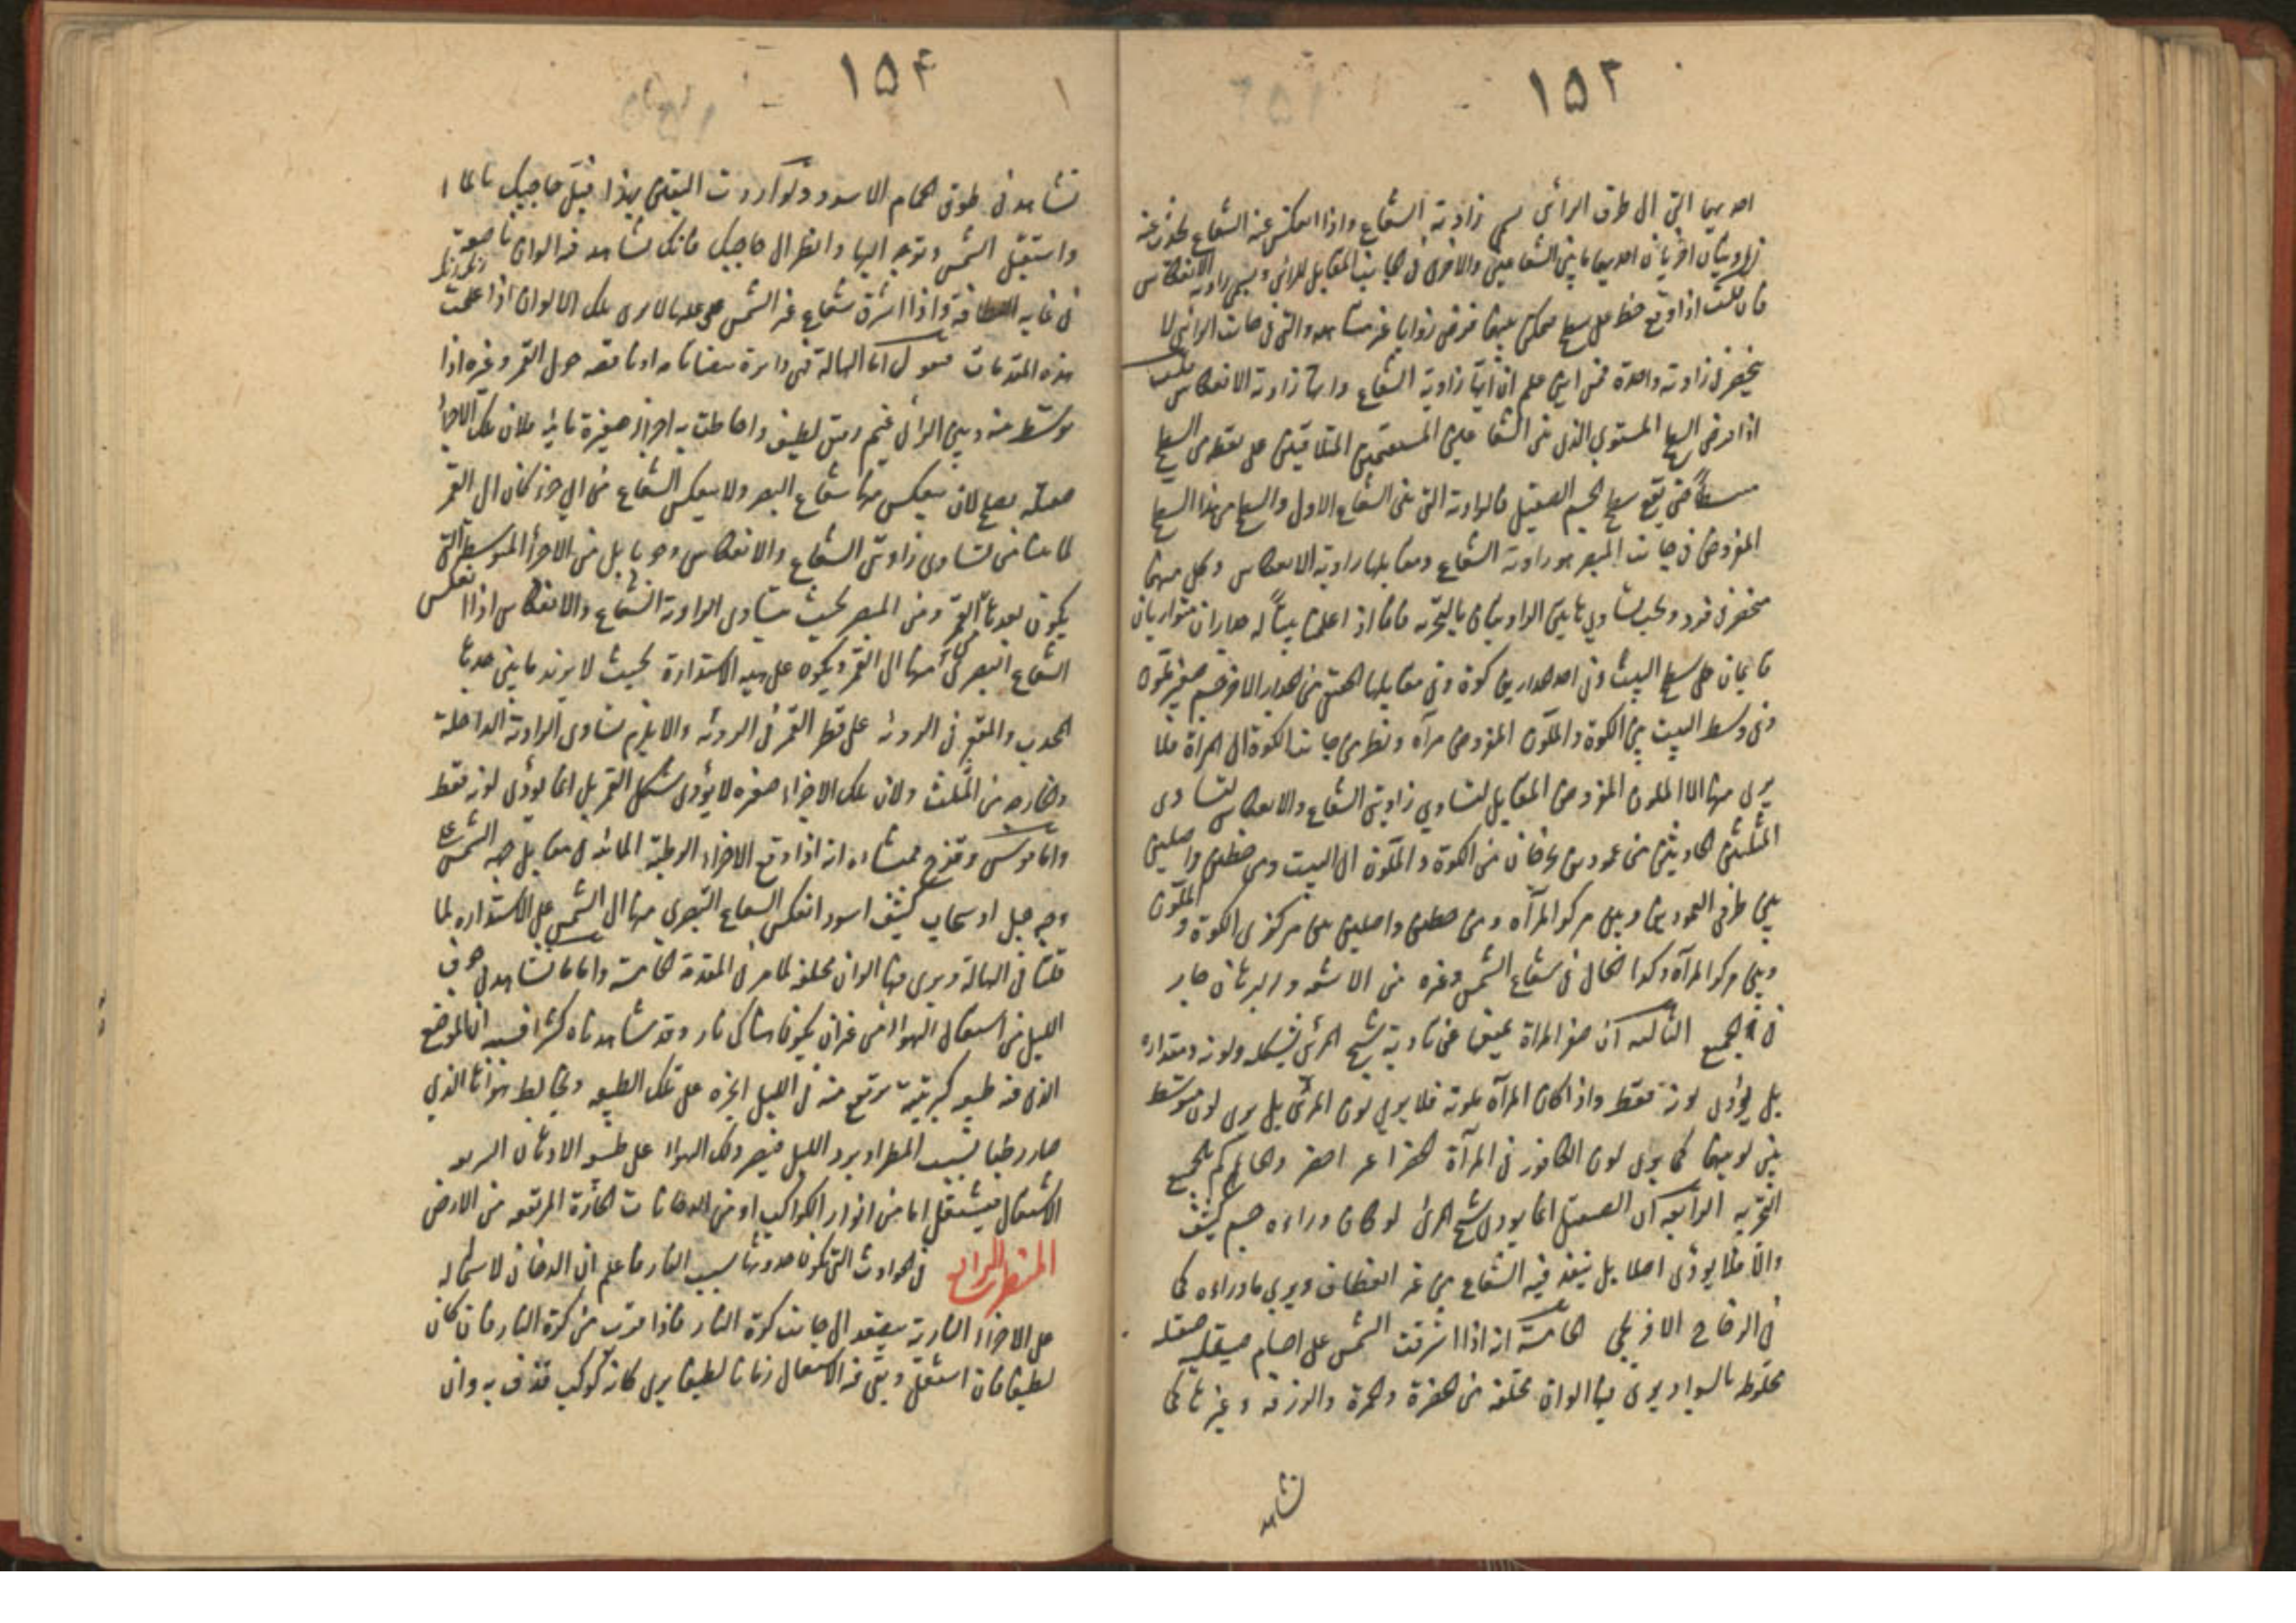 ١٥٣
احديهما التي الى طرف الرائي يسمى زاوية الشعاع واذا انعكس عنه الشعاع يحدث عنه
زاويتان اخريان احديهما ما بين الشعاعين والاخرى في الجانب المقابل للرائي ويسمى زاوية الانعكاس
فان قلت اذا وقع خط على سطح يمكن فيها فرض زوايا غير متناهية والتي في جانب الرائي لا
ينحصر في زاوية واحدة فمن اين علم ان ايتها زاوية الشعاع وايها زاوية الانعكاس قلت
اذا فرض السطح المستوي الذي من الشعاعين المستقيمين المتلاقيين على نقطة من السطح
حتى يقع سطح الجسم الصقيل فالزاوية التي بين الشعاع الاول والسطح من هذا السطح
المفروض في جانب المبصر هو زاوية الشعاع ومقابلها زاوية الانعكاس وكل منهما
منحصر في فرد ويجب تساوي هاتين الزاويتين بالتجربة فانا اذا عملنا بيتا له جداران متوازيان
قائمان على سطح البيت وفي احد جداريها كوة وفي مقابلها من الجدار الاخر جسم صغير ملون
وفي وسط البيت بين الكوة والملون المفروض مرآة ونظر من جانب الكوة الى المرآة فلا
يرى منها الا الملون المفروض المقابل لتساوي زاويتي الشعاع والانعكاس لتساوي
المثلثين الحادثين من عمودين يخرجان من الكوة والملون الى البيت ومن خطين واصلين
بين طرفي العمودين وبين مركز المرآة ومن خطين واصلين بين مركزي الكوة والملون
وبين مركز المرآة وكذا الحال في شعاع الشمس وغيره من الاشعة والبرهان جار
في الجميع الثالثة ان صغر المرآة يمنعها عن تأدية شبح المرئي بشكله ولونه ومقداره
بل يؤدي لونه فقط واذا كان المرآة ملونة فلا يرى لون المرئي بل يرى لون متوسط
بين لونيهما كما يرى لون الكافور في المرآة الخضراء اصفر والحاكم بالجميع
التجربة الرابعة ان الصقيل انما يؤدي شبح المرئي لو كان وراءه جسم كثيف
والا فلا يؤدى اصلا بل ينفذ فيه الشعاع من غير انعطاف ويرى ما وراءه كما
في الزجاج الافرنجي الخامسة انه اذا اشرقت الشمس على اجسام صيقلية صقيلة
مخلوط بالسواد يرى فيها الوان مختلفة من الخضرة والحمرة والزرقة وغيرها كما
تشاهد
١٥٤
تشاهد في طوق الحمام الاسود ولو اردت اليقين بهذا فبل حاجبك بالماء
واستقبل الشمس وتوجه اليها وانظر الى حاجبك فانك تشاهد فيه الوانا ناصعة
في غاية اللطافة واذا اشرق شعاع غير الشمس عليها لا يرى تلك الالوان اذا علمت
هذه المقدمات فنقول اما الهالة فهي دائرة بيضاء تامة او ناقصة حول القمر وغيره اذا
توسط بينه وبين الرائي غيم رقيق لطيف واحاطت به اجزاء صغيرة مائية فلان تلك الاجزاء
صقيلة يصلح لان ينعكس منها شعاع البصر ولا ينعكس الشعاع من اي جزء كان الى القمر
لما بينا من تساوي زاويتي الشعاع والانعكاس وجوبا بل من الاجزاء المتوسطة التي
يكون بعدها عن القمر ومن المبصر بحيث يتساوى الزاوية الشعاع والانعكاس اذا انعكس
الشعاع البصري منها الى القمر ويكون على هيئة الاستدارة بحيث لا يزيد ما بين حديها
المحدب والمقعر في الرؤية على قطر القمر في الرؤية والا يلزم تساوي الزاوية الداخلة
والخارجة من المثلث ولان تلك الاجزاء صغيرة لا يؤدى شكل القمر بل انما يؤدى لونه فقط
واما قوس وقزح فمنشاؤه انه اذا وقع الاجزاء الرطبة المائية في مقابل جهة الشمس على
وجه جبل او سحاب كثيف اسود انعكس الشعاع البصري منها الى الشمس على الاستدارة لما
قلنا في الهالة ويرى فيها الوان مختلفة لما مر في المقدمة الخامسة واما ما نشاهد في جوف
الليل من اشتعال الهواء من غير ان يكون هناك نار وقد شاهدناه كثيرا فسببه ان الموضع
الذي فيه طبيعة كبريتية يرتفع منه في الليل ابخرة على تلك الطبيعة ويخالط هواءها الذي
صار رطبا بسبب المطر او برد الليل فيصير ذلك الهواء على طبيعة الادهان السريعة
الاشتعال فيشتعل اما من انوار الكواكب او من الدخانات الحارة المرتفعة من الارض
المنظر الرابع في الحوادث التي يكون حدوثها بسبب النار فاعلم ان الدخان لاشتماله
على الاجزاء النارية يصعد الى جانب كرة النار فاذا قرب من كرة النار فان كان
لطيفا فان اشتعل وبقي فيه الاشتعال زمانا لطيفا يرى كانه كوكب قذف به وان